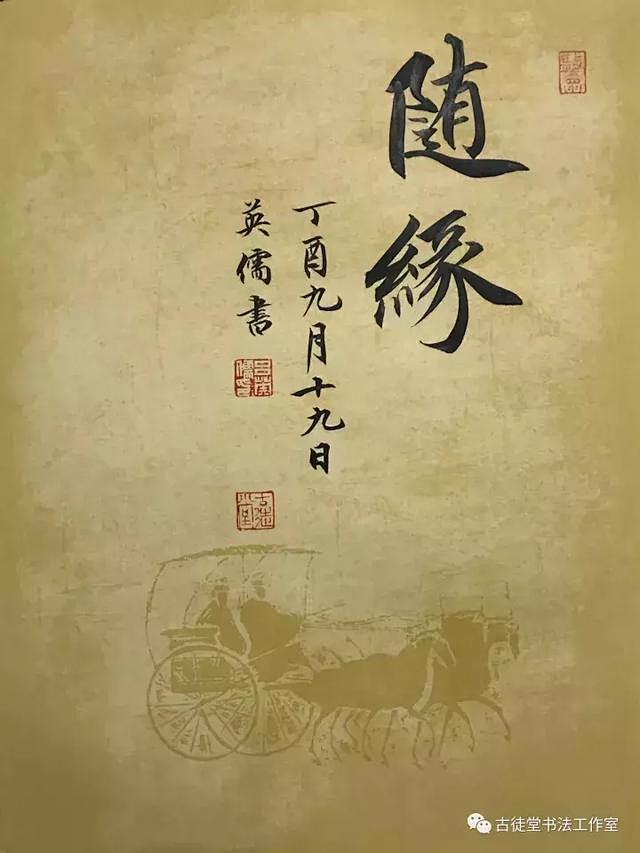 随
緣
丁酉九月十九日
英儒書
古徒堂
古徒堂书法工作室